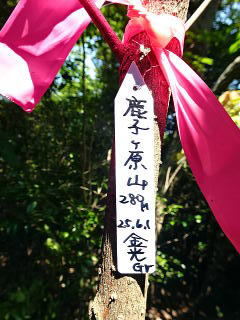 鹿子ヶ原山
289m
25.6.1
金光
Gr